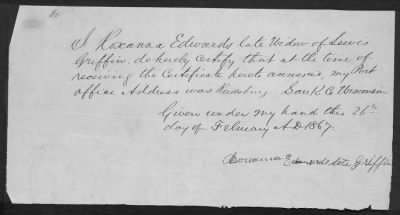 I Roxanna Edwards late Widow of Lewis
Griffin, do hereby Certify that at the time of
receiving the Certificate hereto annexed, my Post
office Address was Reedsburg Sauk Co Wisconsin
Given under my hand this 26th
day of February A.D. 1867.
Roxanna Edwards late Griffin